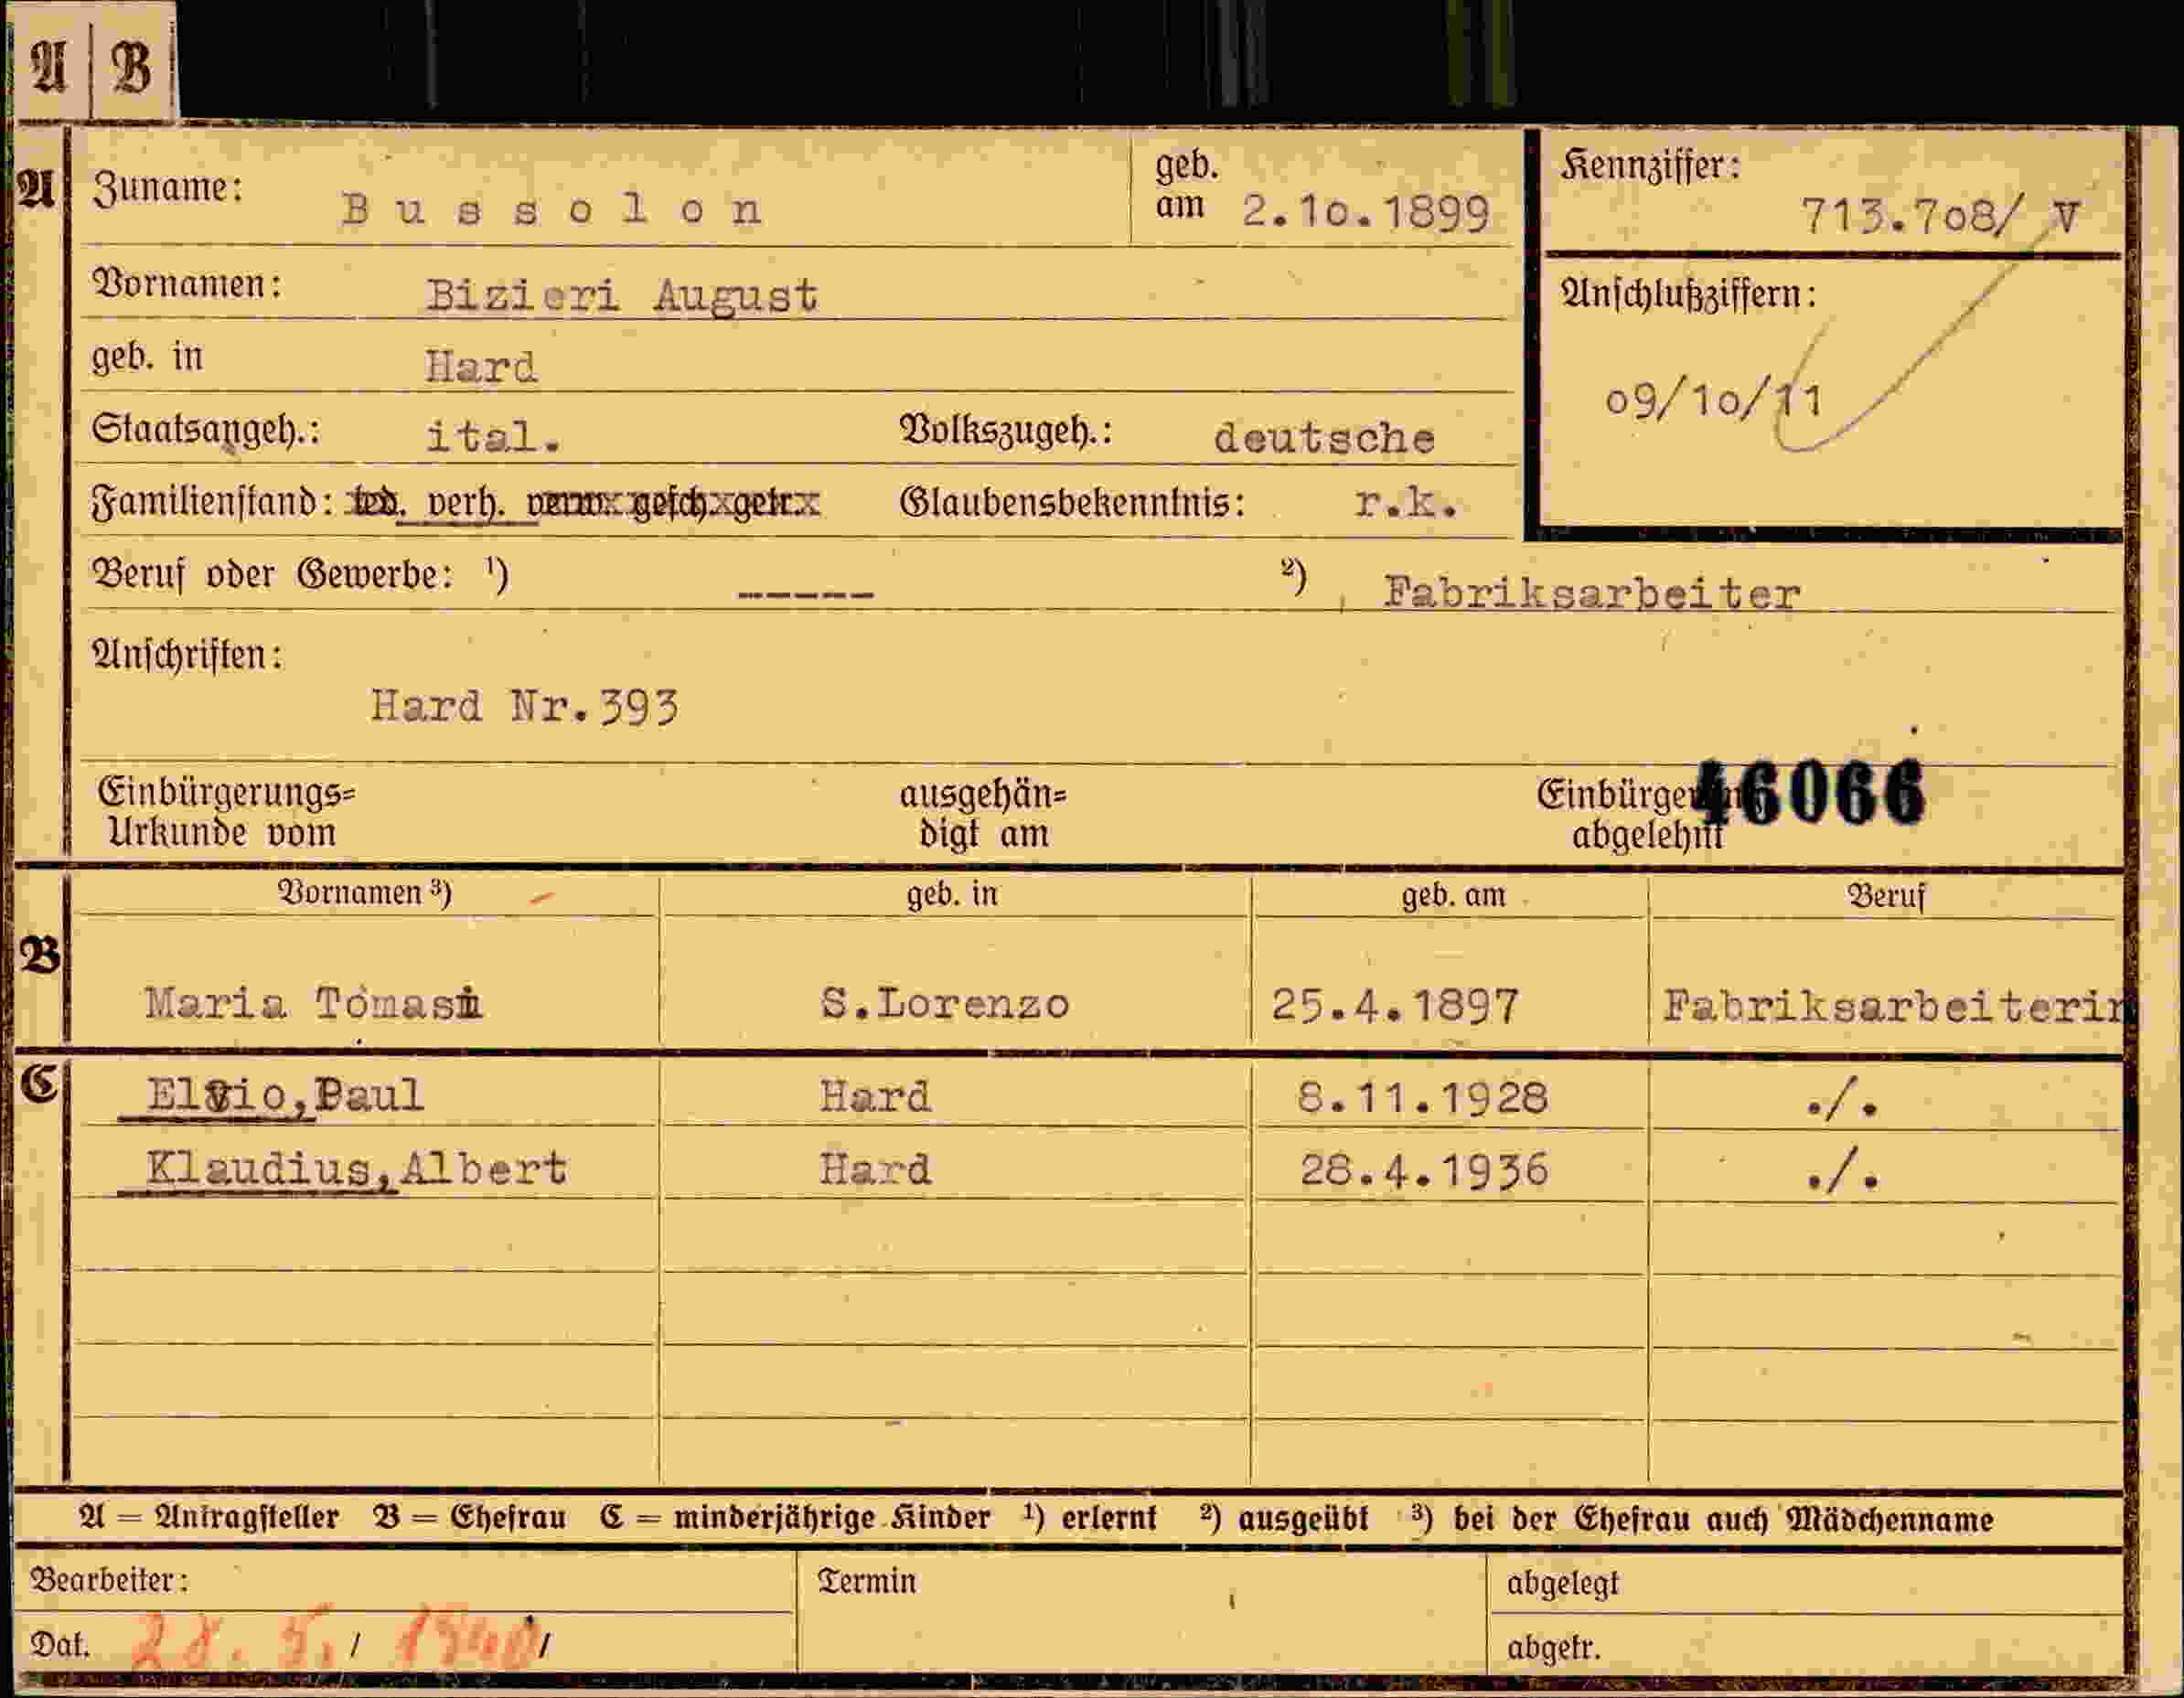 A B
A Zuname: Bussolon geb. am 2.10.1899 Kennziffer: 713.708/ V
Vornamen: Bizieri August Anschlußziffern:
geb. in Hard 09/10/11
Staatsangeh.: ital. Volkszugeh.: deutsche
Familienstand: led. verh. verw. gesch. getr. Glaubensbekenntnis: r.k.
Beruf oder Gewerbe: ¹) ----- ²) Fabriksarbeiter
Anschriften:
Hard Nr.393
Einbürgerungs= ausgehän= 46066
Urkunde vom digt am abgelehnt
Vornamen ³) geb. in geb. am Beruf
B Maria Tomasi S.Lorenzo 25.4.1897 Fabriksarbeiterin
C Elvio, Paul Hard 8.11.1928 ./.
Klaudius, Albert Hard 28.4.1936 ./.
A = Antragsteller B = Ehefrau C = minderjährige Kinder ¹) erlernt ²) ausgeübt ³) bei der Ehefrau auch Mädchenname
Bearbeiter: Termin abgelegt
Dat. 28. 5. / 1940 / abgetr.